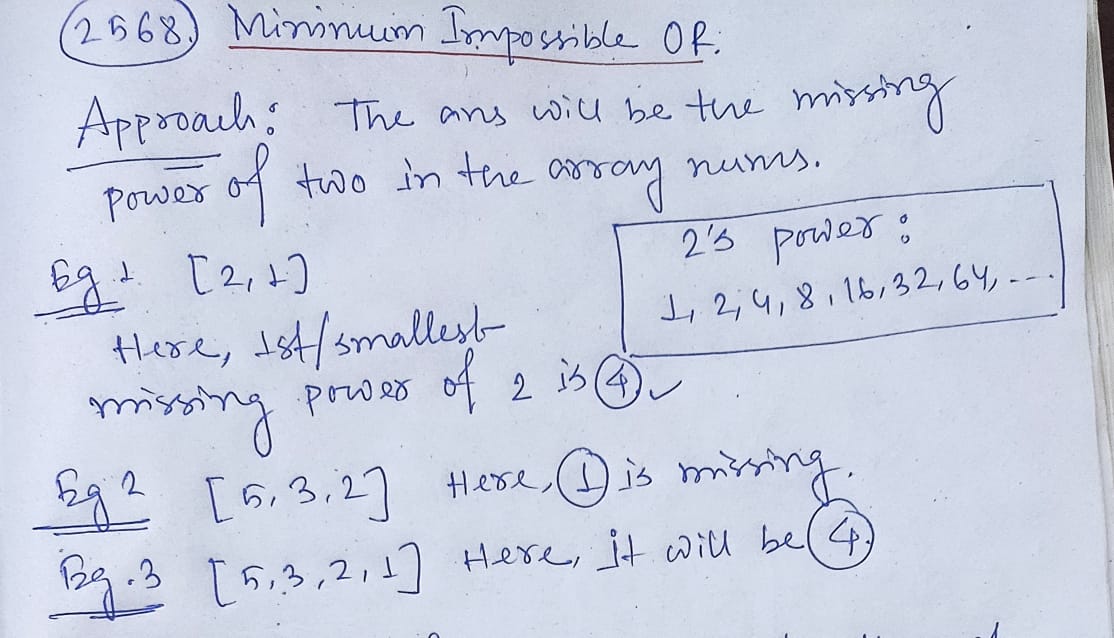 2568. Minimum Impossible OR.
Approach: The ans will be the missing
power of two in the array nums.
2's power:
1, 2, 4, 8, 16, 32, 64, ---.
Eg 1. [2,1]
Here, 1st/smallest
missing power of 2 is 4.
Eg 2 [5,3,2] Here, 1 is missing.
Eg.3 [5,3,2,1] Here, it will be 4.